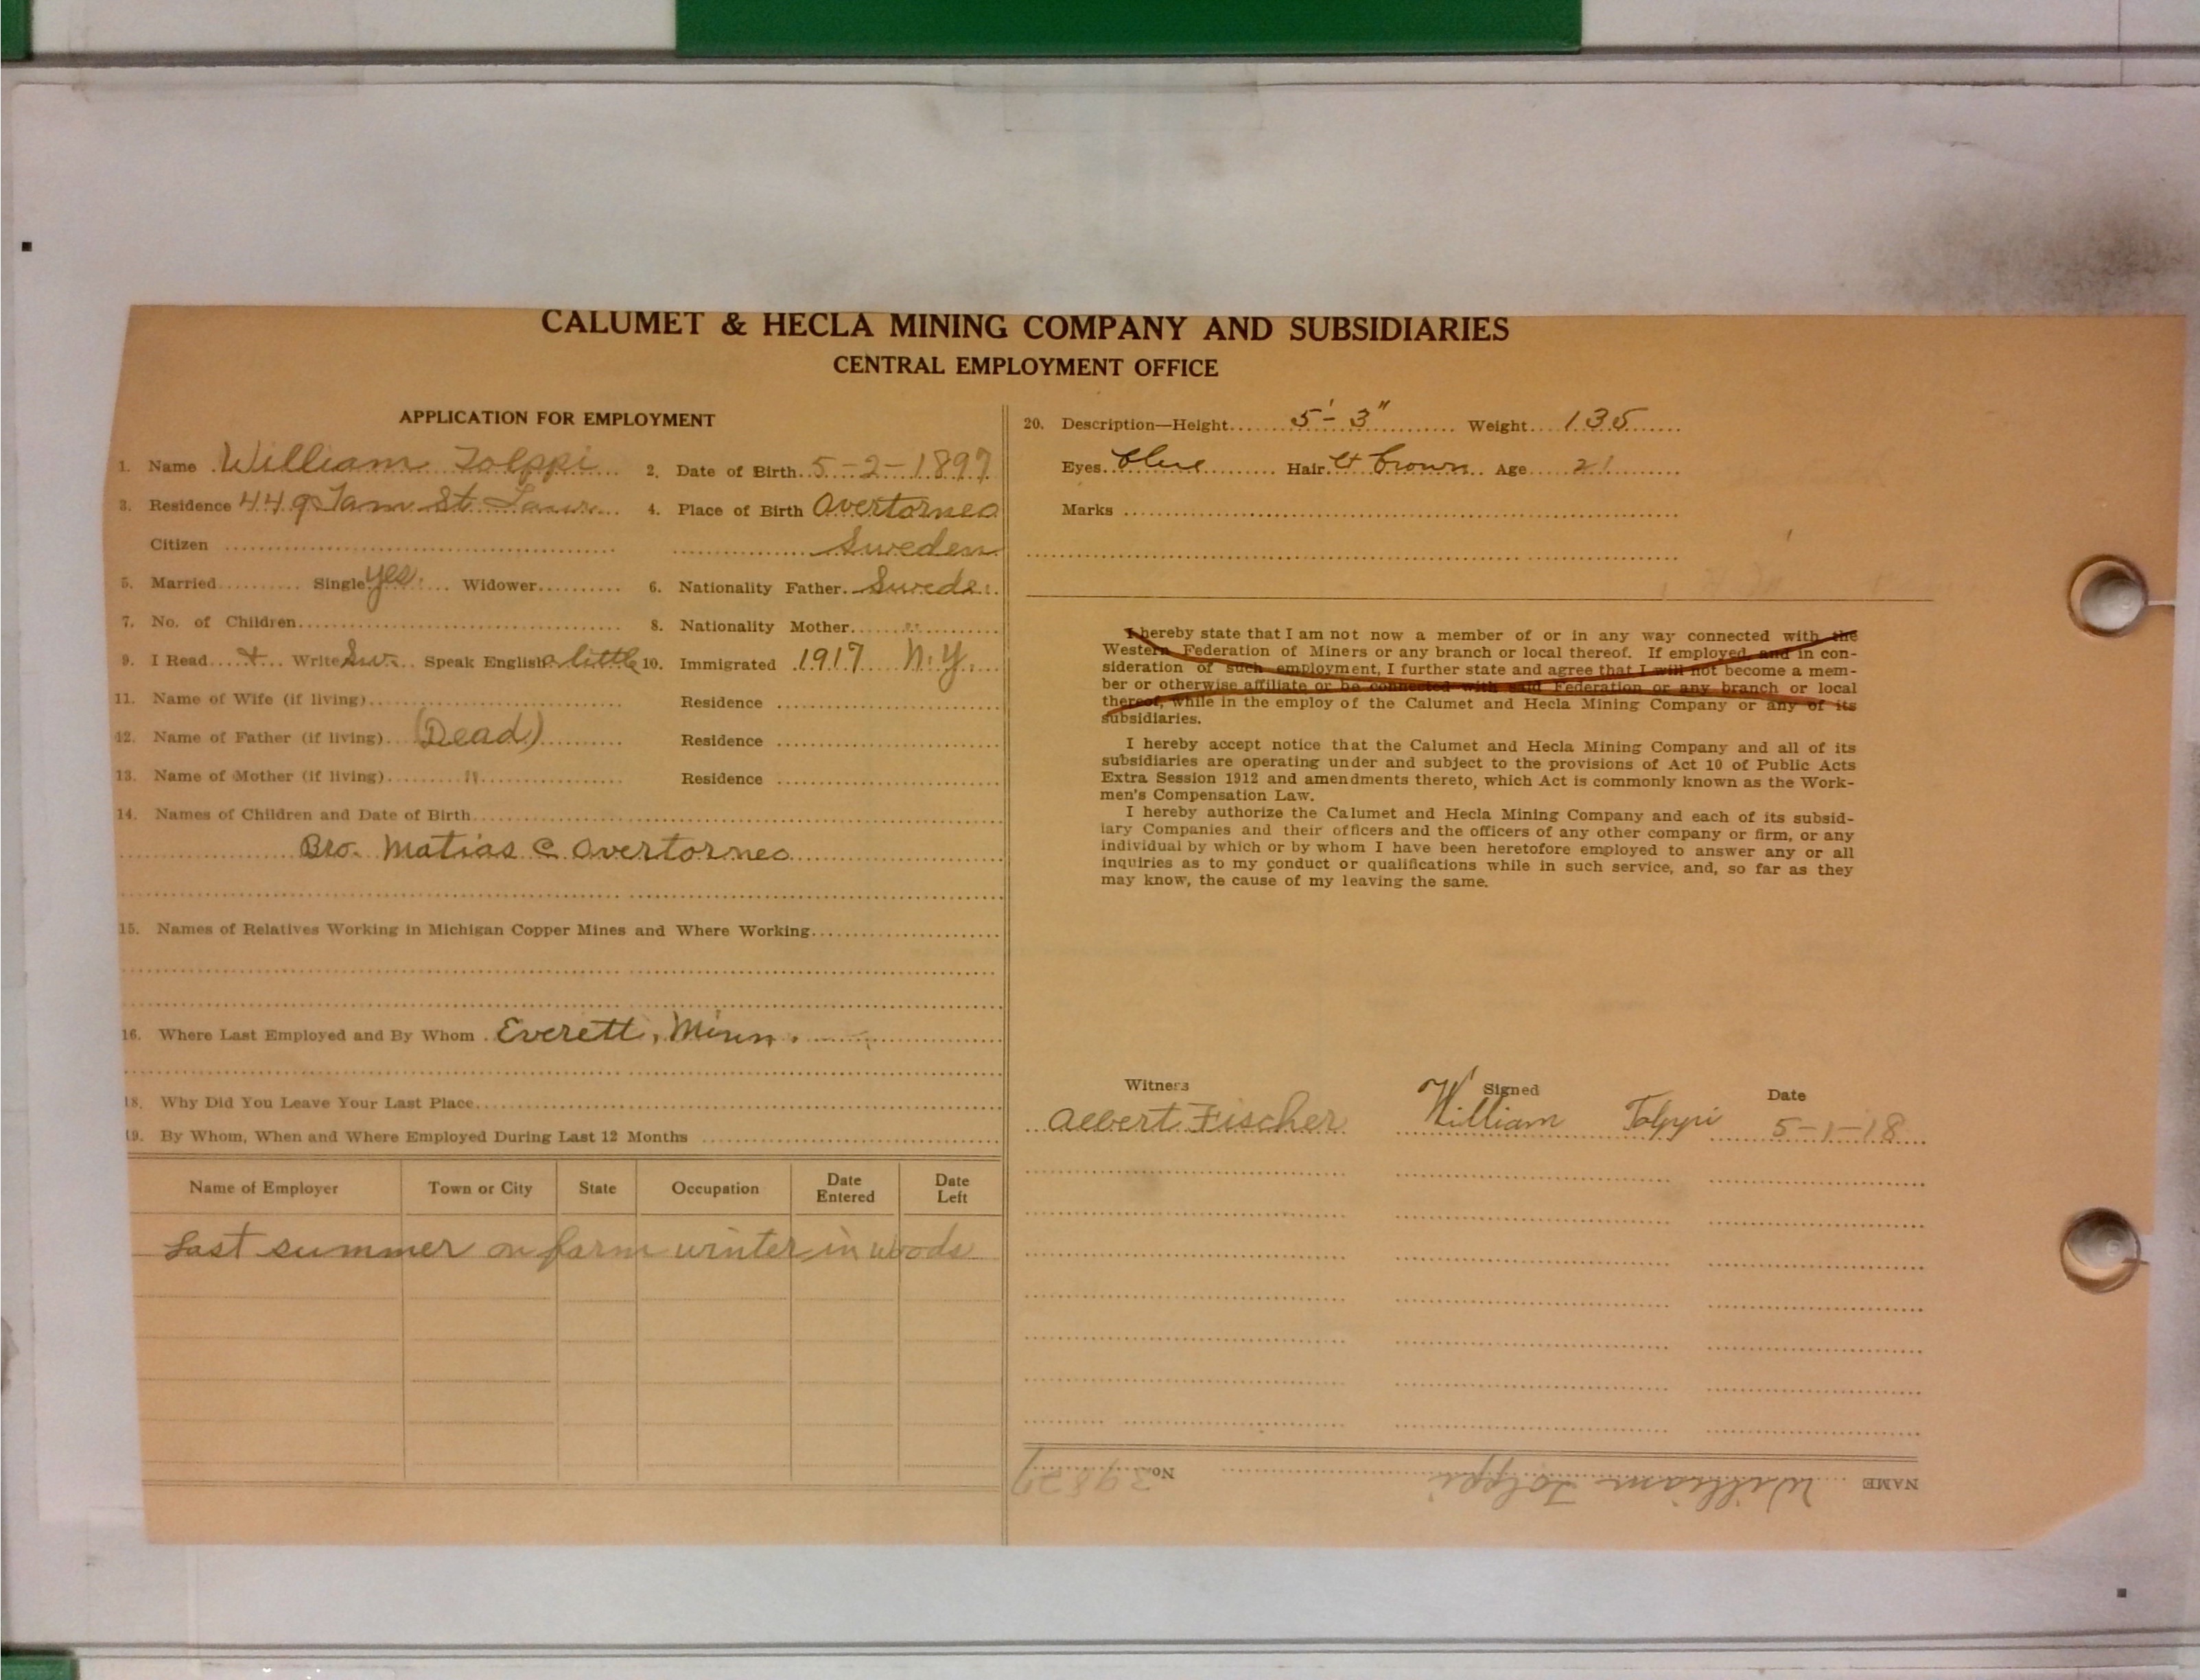 CALUMET & HECLA MINING COMPANY AND SUBSIDIARIES
CENTRAL EMPLOYMENT OFFICE
APPLICATION FOR EMPLOYMENT
1. Name William Tolppi 2. Date of Birth 5-2-1897
3. Residence 449 Tam St. Laur. 4. Place of Birth Overtorneo
Citizen Sweden
5. Married Single yes. Widower 6. Nationality Father Swede.
7. No. of Children 8. Nationality Mother "
9. I Read + Write Sw. Speak English a little 10. Immigrated 1917 N.Y.
11. Name of Wife (if living) Residence
12. Name of Father (if living) (Dead) Residence
13. Name of Mother (if living) " Residence
14. Names of Children and Date of Birth
Bro. Matias @ Overtorneo
15. Names of Relatives Working in Michigan Copper Mines and Where Working
16. Where Last Employed and By Whom Everett, Minn.
18. Why Did You Leave Your Last Place
19. By Whom, When and Where Employed During Last 12 Months
Name of Employer Town or City State Occupation Date Entered Date Left
Last summer on farm winter in woods
20. Description—Height 5'-3" Weight 135
Eyes blue Hair lt brown Age 21
Marks
I hereby state that I am not now a member of or in any way connected with the
Western Federation of Miners or any branch or local thereof. If employed, and in con-
sideration of such employment, I further state and agree that I will not become a mem-
ber or otherwise affiliate or be connected with said Federation or any branch or local
thereof, while in the employ of the Calumet and Hecla Mining Company or any of its
subsidiaries.
I hereby accept notice that the Calumet and Hecla Mining Company and all of its
subsidiaries are operating under and subject to the provisions of Act 10 of Public Acts
Extra Session 1912 and amendments thereto, which Act is commonly known as the Work-
men's Compensation Law.
I hereby authorize the Calumet and Hecla Mining Company and each of its subsid-
iary Companies and their officers and the officers of any other company or firm, or any
individual by which or by whom I have been heretofore employed to answer any or all
inquiries as to my conduct or qualifications while in such service, and, so far as they
may know, the cause of my leaving the same.
Witness Signed Date
Albert Fischer William Tolppi 5-1-18
NAME William Tolppi No. 39827